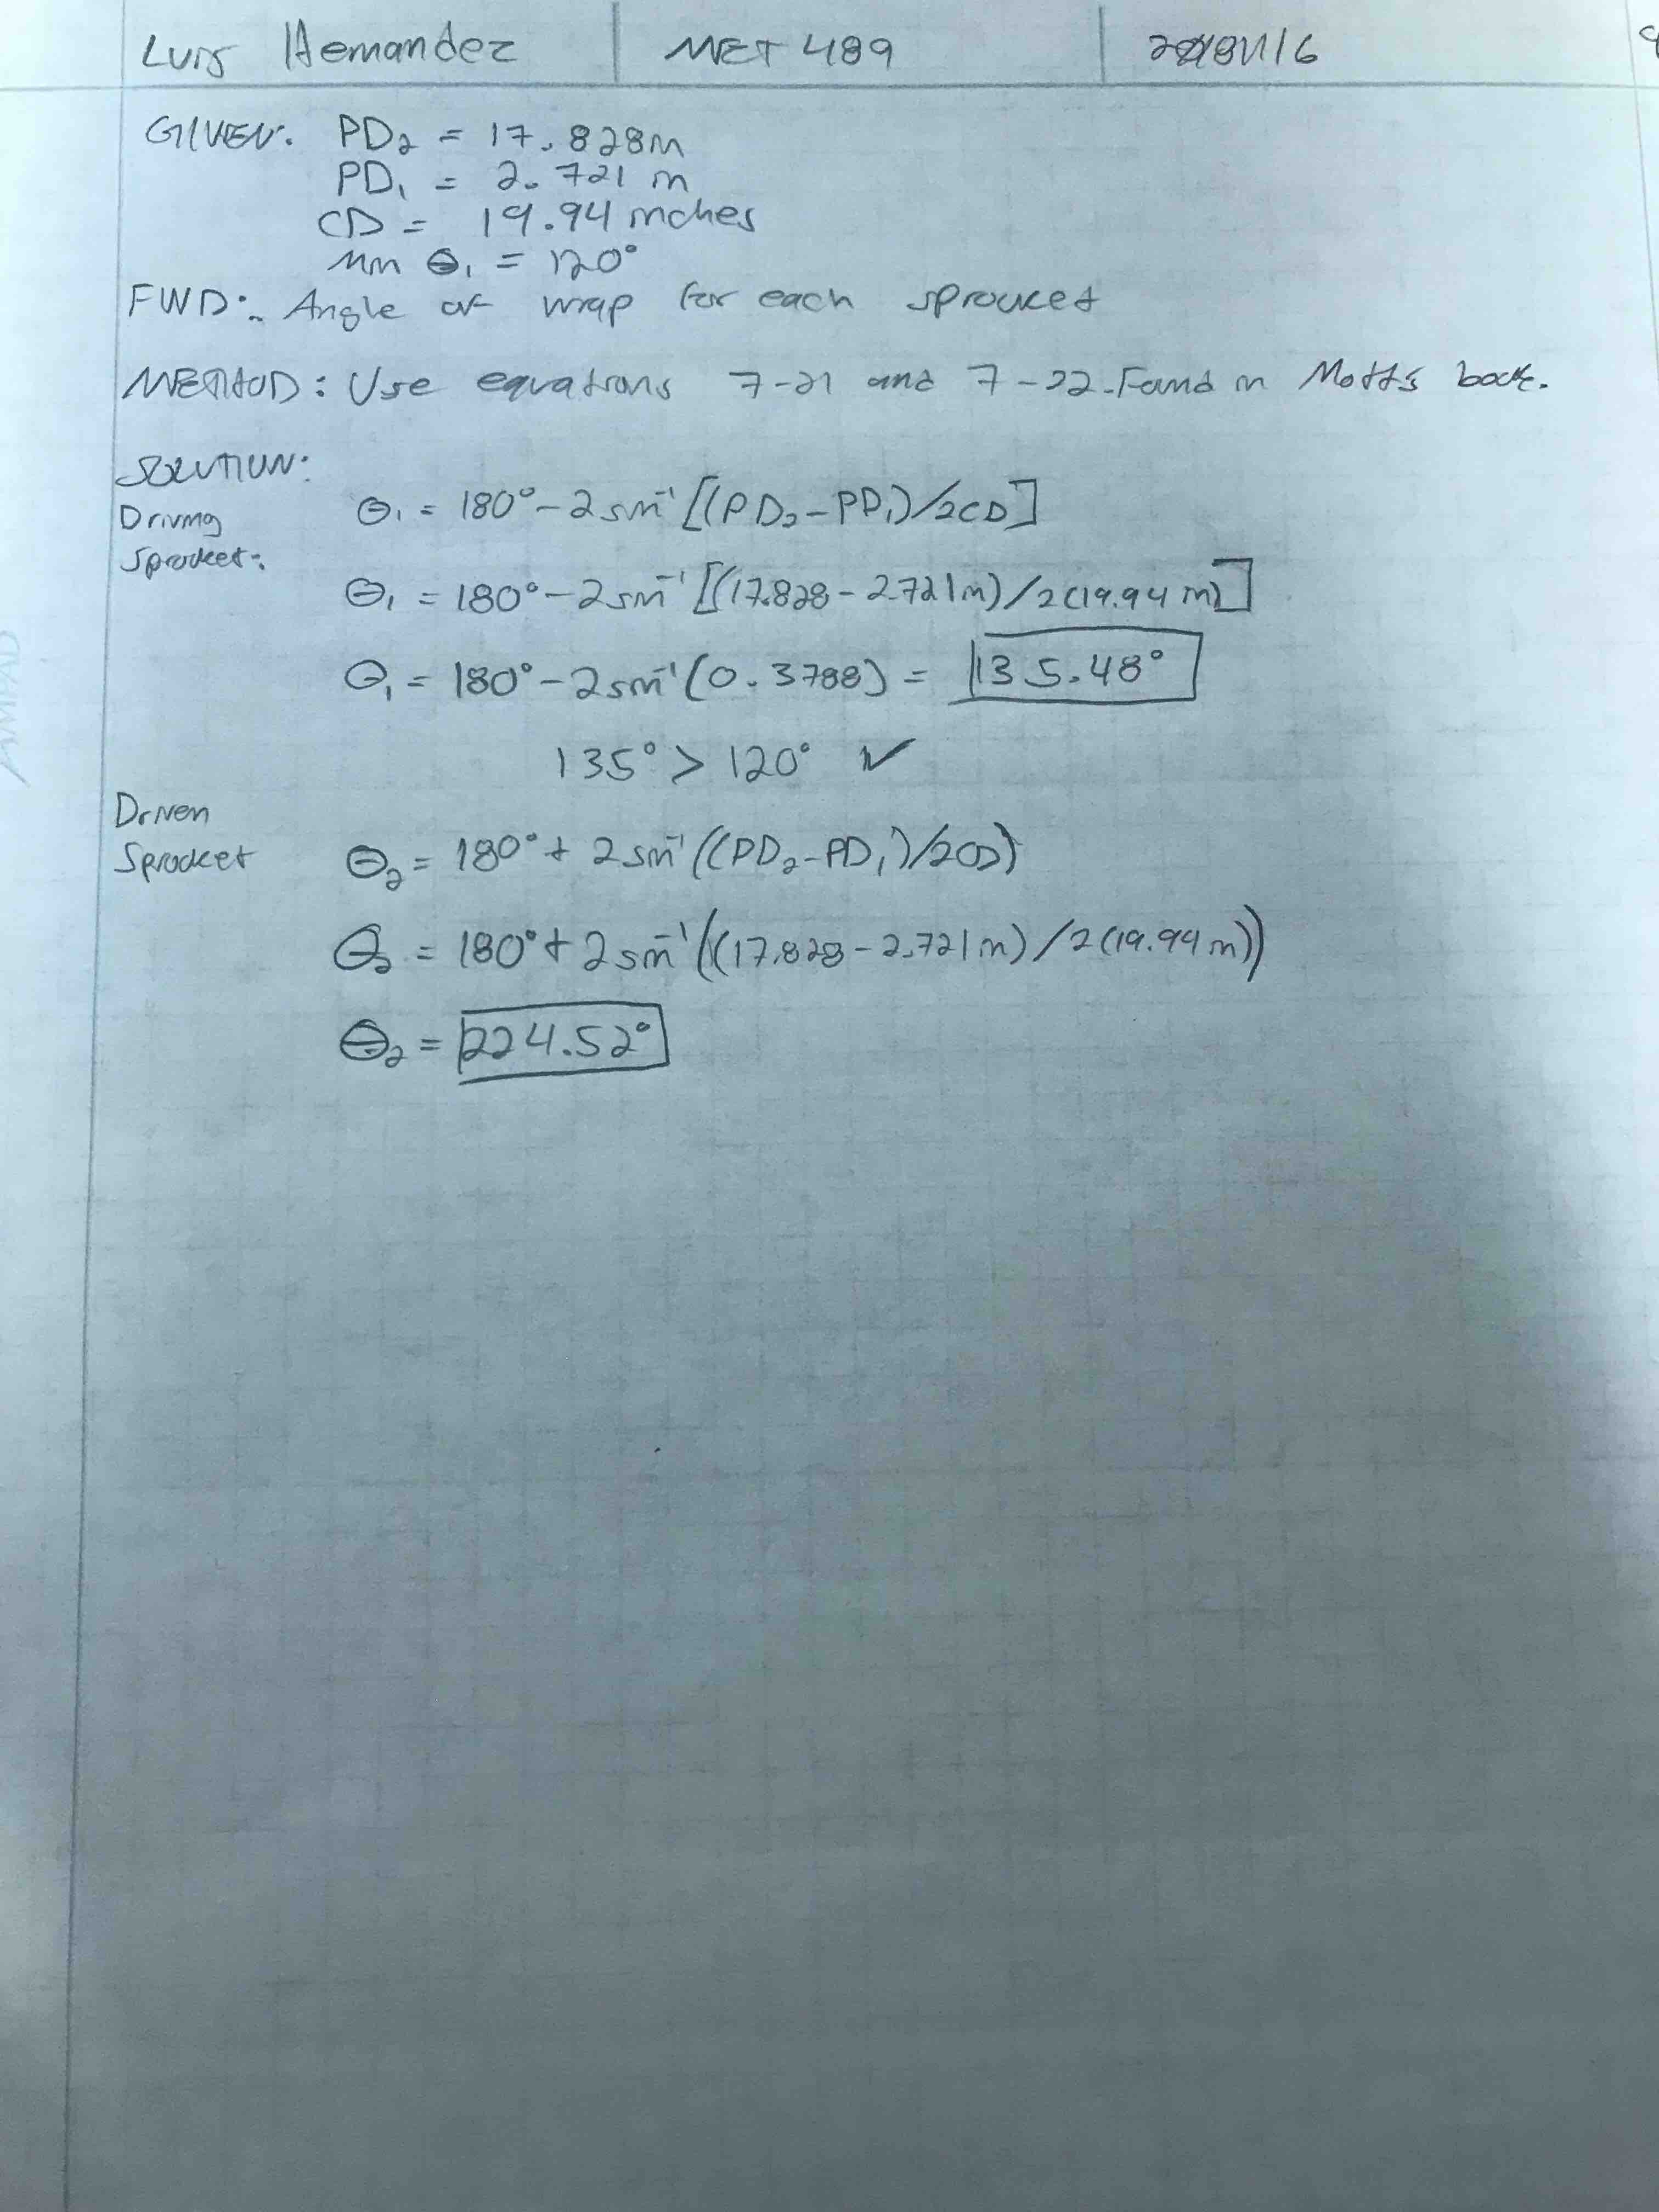 Luis Hernandez MET 489
GIVEN: PD₂ = 17.828in
PD₁ = 2.721 in
CD = 19.94 inches
Min θ₁ = 120°
FIND: Angle of wrap for each sprocket
METHOD: Use equations 7-21 and 7-22. Found in Mott's book.
SOLUTION:
Driving
Sprocket:
θ₁ = 180° - 2 sin⁻¹ [(PD₂ - PD₁)/2CD]
θ₁ = 180° - 2 sin⁻¹ [(17.828 - 2.721in)/2(19.94 in)]
θ₁ = 180° - 2 sin⁻¹ (0.3788) = 135.48°
135° > 120° ✓
Driven
Sprocket
θ₂ = 180° + 2 sin⁻¹ ((PD₂ - PD₁)/2CD)
θ₂ = 180° + 2 sin⁻¹ ((17.828 - 2.721in)/2(19.94 in))
θ₂ = 224.52°
AMPAD